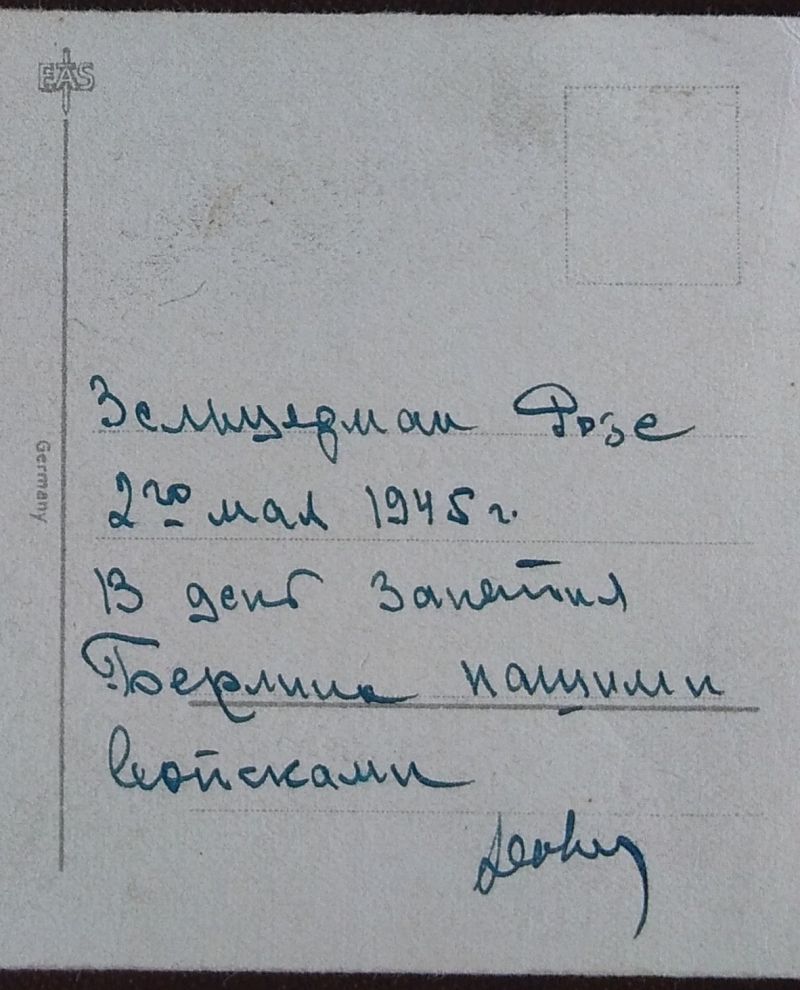 EAS
Germany
Розе
2го мая 1945 г.
В день занятия
Берлина нашими
войсками